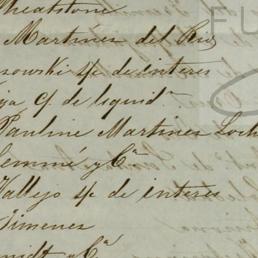 Wheatstone
Martinez del Rio
sowski y/c de interes
ija C/. de liquidn
Pauline Martinez Loch
Lemmé y Ca
Vallejo y/c de interes
Jimenez
midt y Ca
FU